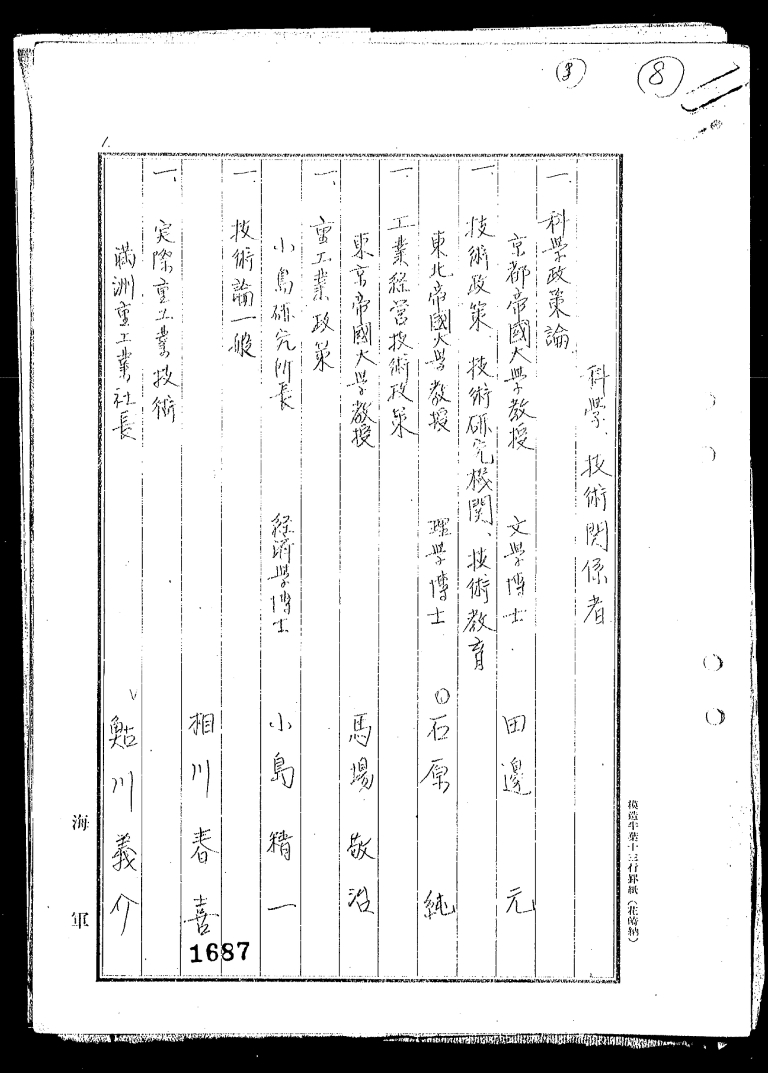 ⑧
科學、技術関係者
一、科學政策論
京都帝國大學教授 文學博士 田邊 元
一、技術政策、技術研究機関、技術教育
東北帝國大學教授 理學博士 ○石原 純
一、工業経営技術政策
東京帝國大學教授 馬場敬治
一、重工業政策
小島研究所長 経済學博士 小島精一
一、技術論一般
相川春喜
一、実際重工業技術
満洲重工業社長 鮎川義介
海軍
1687